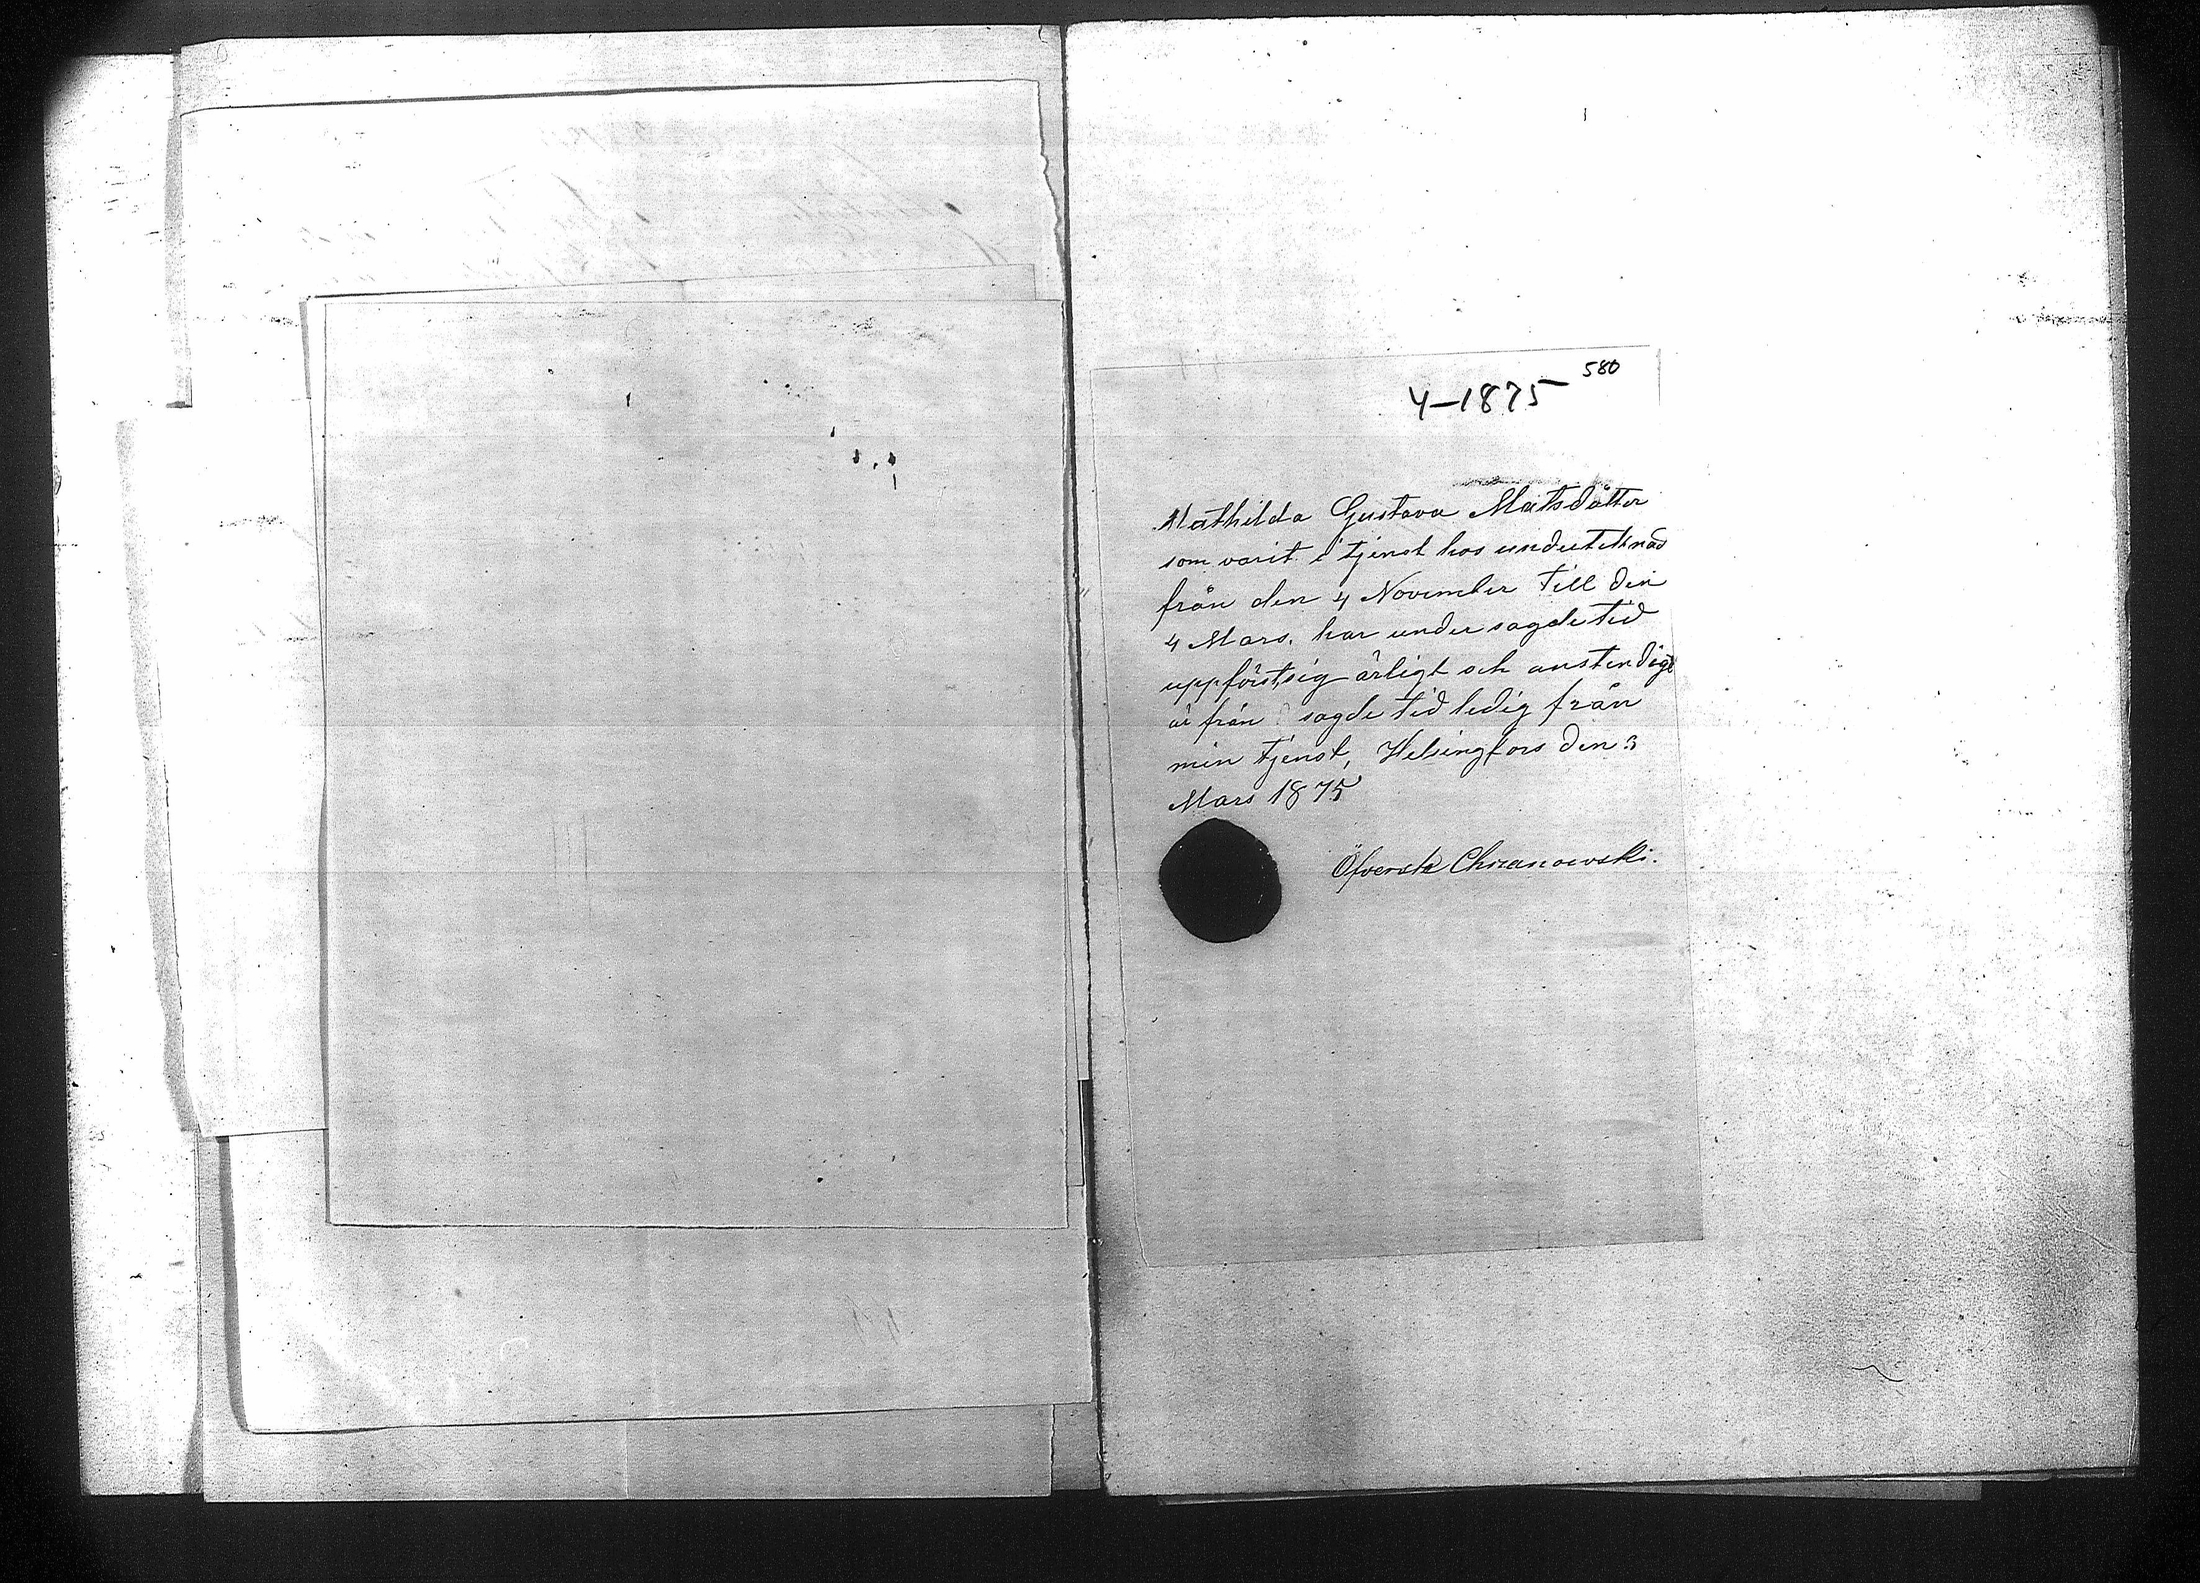 580
4-1875
Mathilda Gustava Matsdotter
som varit i tjenst hos underteknad
från den 4 November till den
4 Mars. har under sagde tid
uppförtsig ärligt och anstendigt
är från sagde tid ledig från
min tjenst, Helsingfors den 3
Mars 1875
Öfverste Chrzanowski.